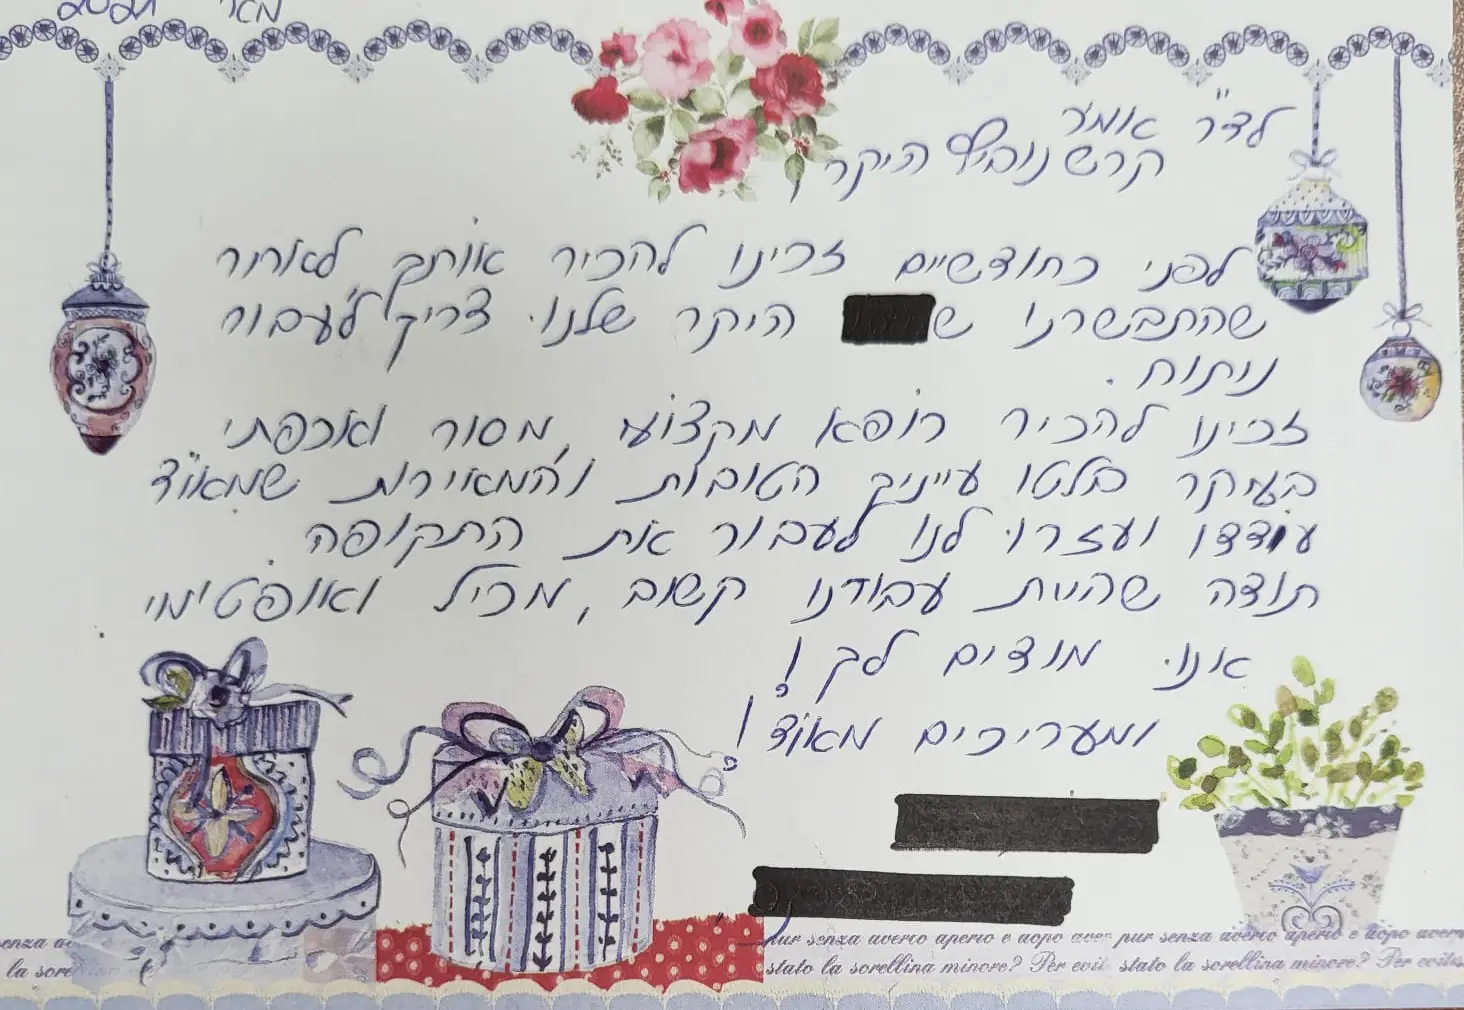 מאי 2021
לד"ר אומר
קרשנוביץ היקר,
לפני כחודשיים זכינו להכיר אותך לאחר
שהתבשרנו ש היקר שלנו צריך לעבור
ניתוח.
זכינו להכיר רופא מקצועי, מסור ואכפתי
בעיקר בלטו עייניך הטובות והמאירות שמאוד
עודדו ועזרו לנו לעבור את התקופה.
תודה שהיית עבורנו קשוב, מכיל ואופטימי
אנו מודים לך!
ומעריכים מאוד!
pur senza averto aperto e dopo aver pur senza averto aperto e dopo avern
stato la sorellina minore? Per evit stato la sorellina minore? Per evitas
enza a
la sorellino